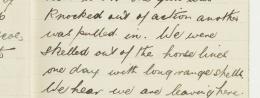 knocked out of action another
was pulled in. We were
shelled out of the horse lines
one day with long range shells.
We hear we are leaving here.